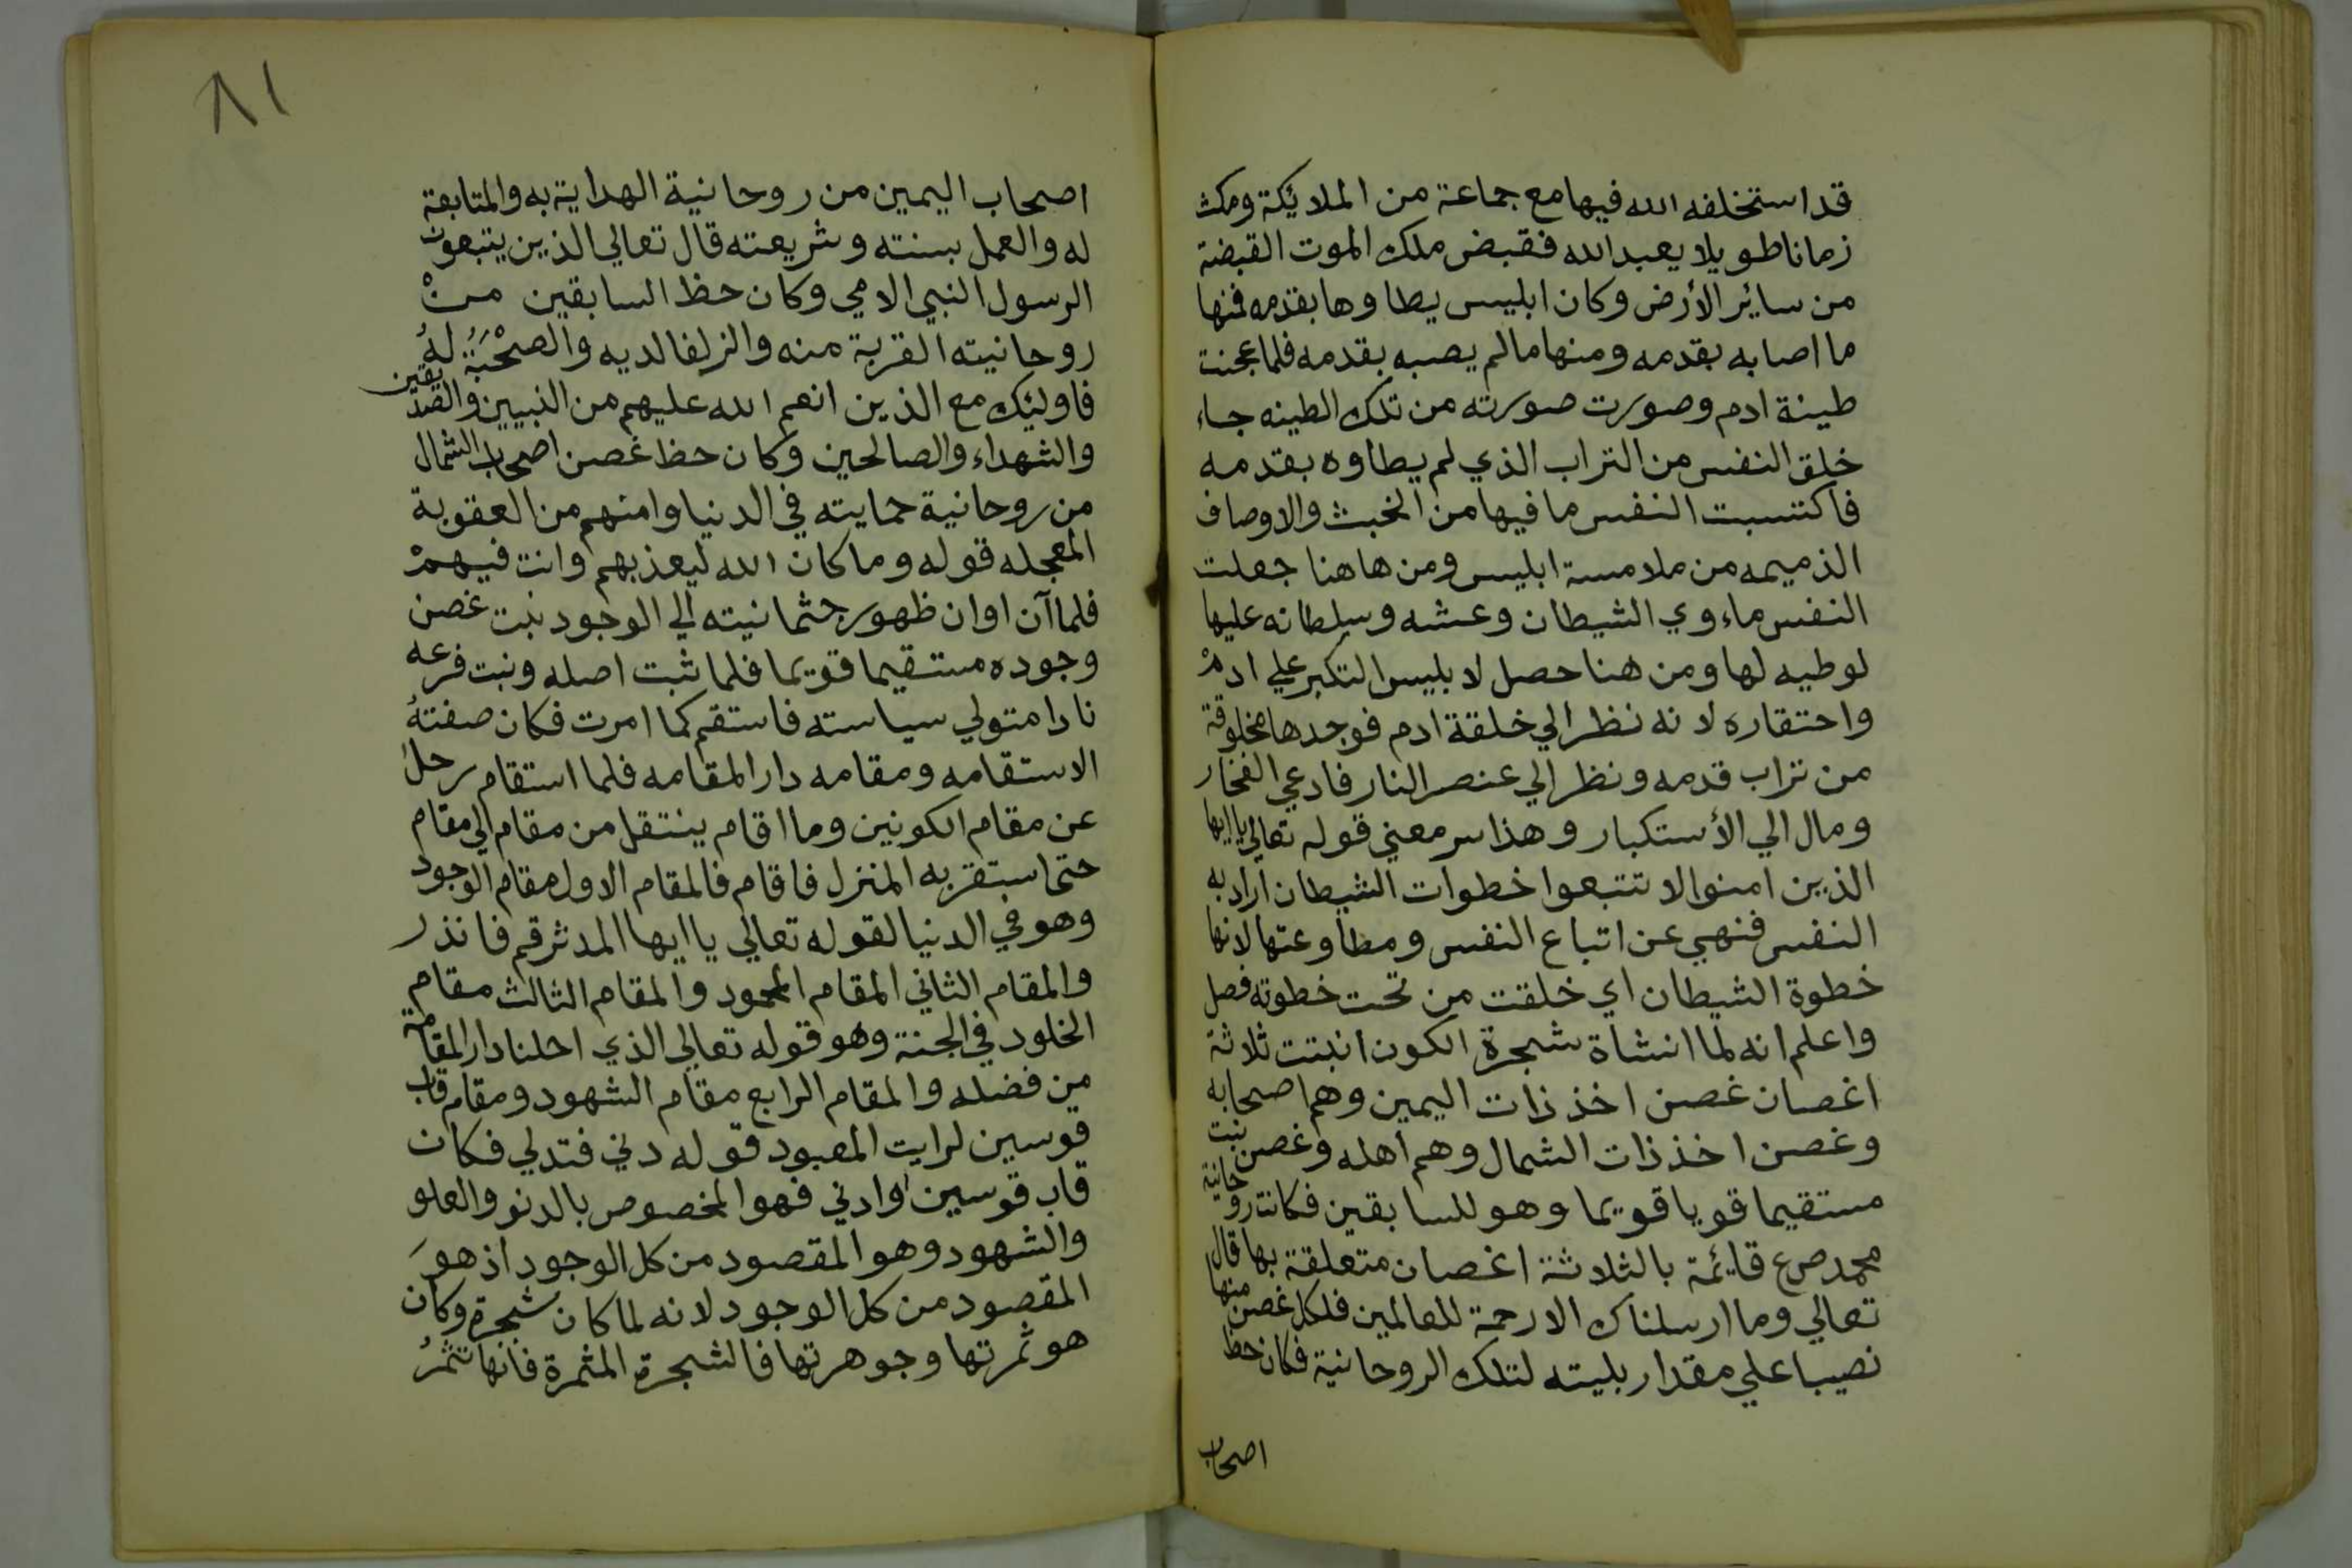 قد استخلفه الله فيها مع جماعة من الملائكة ومكث
زمانا طويلا يعبد الله فقبض ملك الموت القبضة
من سائر الأرض وكان ابليس يطاوها بقدمه فمنها
ما اصابه بقدمه ومنها ما لم يصبه بقدمه فلما عجنت
طينة ادم وصورت صورته من تلك الطينه جاء
خلق النفس من التراب الذي لم يطاوه بقدمه
فاكتسبت النفس ما فيها من الخبث والاوصاف
الذميمه من ملامسة ابليس ومن هاهنا جعلت
النفس ماءوي الشيطان وعشه وسلطانه عليها
لوطيه لها ومن هنا حصل لابليس التكبر علي ادم
واحتقاره لانه نظر الي خلقة ادم فوجدها مخلوقة
من تراب قدمه ونظر الي عنصر النار فادعي الفخار
ومال الي الأستكبار وهذا سر معني قوله تعالي يا ايها
الذين امنوا لا تتبعوا خطوات الشيطان اراد به
النفس فنهي عن اتباع النفس ومطاوعتها لانها
خطوة الشيطان اي خلقت من تحت خطوته فصل
واعلم انه لما انشاة شجرة الكون انبتت ثلاثة
اغصان غصن اخذ ذات اليمين وهم اصحابه
وغصن اخذ ذات الشمال وهم اهله وغصن نبت
مستقيما قويا قويما وهو للسابقين فكانت روحانية
محمد صرع قائمة بالثلاثة اغصان متعلقة بها قال
تعالي وما ارسلناك الا رحمة للعالمين فلكل غصن منها
نصيبا علي مقدار بليته لتلك الروحانية فكان حظ
اصحاب
٨١
اصحاب اليمين من روحانية الهداية به والمتابعة
له والعمل بسنته وشريعته قال تعالي الذين يتبعون
الرسول النبي الامي وكان حظ السابقين منْ
روحانيته القربة منه والزلفا لديه والصحْبَةُ لهُ
فاوليئك مع الذين انعم الله عليهم من النبيين والصديقين
والشهداء والصالحين وكان حظ غصن اصحاب الشمال
من روحانية حمايته في الدنيا وامنهم من العقوبة
المعجله قوله وما كان الله ليعذبهم وانت فيهمْ
فلما آن اوان ظهور جثمانيته الي الوجود نبت غصن
وجوده مستقيما قويما فلما ثبت اصله ونبت فرعه
نادا متولي سياسته فاستقم كما امرت فكان صفتهُ
الاستقامه ومقامه دار المقامه فلما استقام رحل
عن مقام الكونين وما اقام ينتقل من مقام الي مقام
حتا ستقر به المنزل فاقام فالمقام الاول مقام الوجود
وهو في الدنيا لقوله تعالي يا ايها المدثر قم فانذر
والمقام الثاني المقام المحمود والمقام الثالث مقام
الخلود في الجنة وهو قوله تعالي الذي احلنا دار المقامة
من فضله والمقام الرابع مقام الشهود ومقام قاب
قوسين لرايت المعبود قوله دني فتدلي فكان
قاب قوسين اوادني فهو المخصوص بالدنو والعلو
والشهود وهو المقصود من كل الوجود اذ هوَ
المقصود من كل الوجود لانه لما كان شجرة وكان
هو ثمرتها وجوهرتها فالشجرة المثمرة فانها تثمرُ